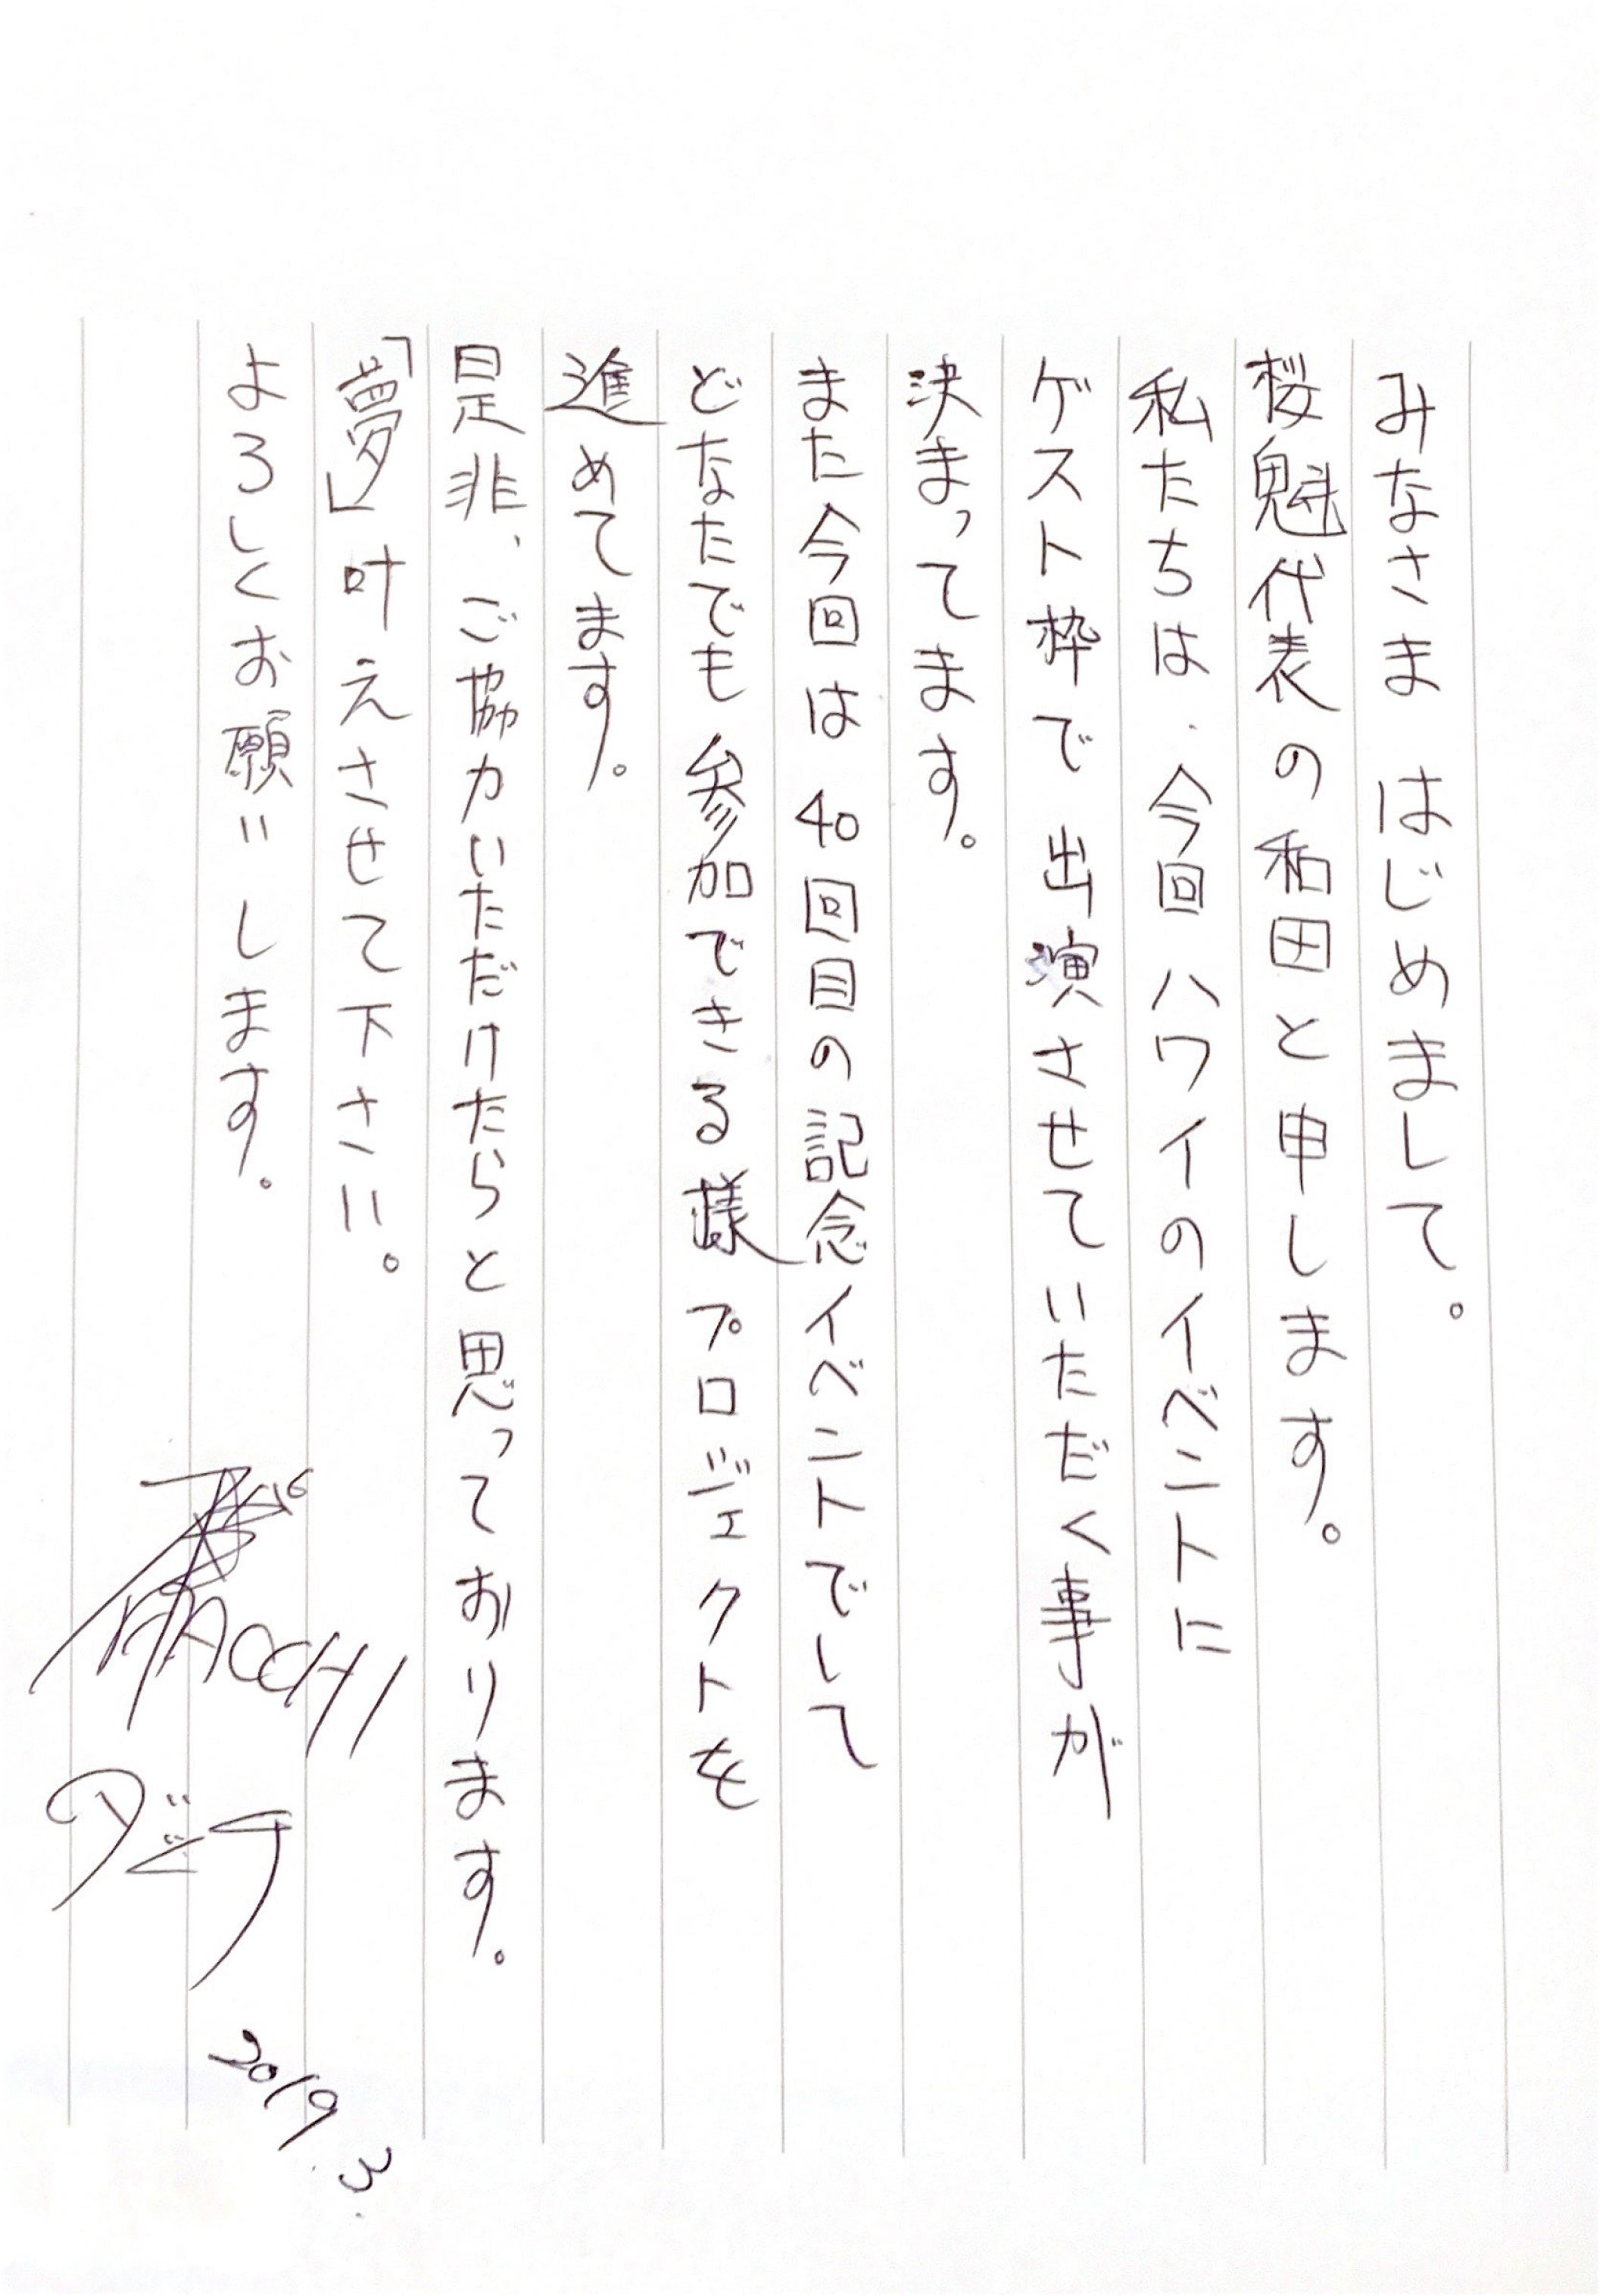 みなさま はじめまして。
桜魁代表の和田と申します。
私たちは、今回ハワイのイベントに
ゲスト枠で出演させていただく事が
決まってます。
また今回は40回目の記念イベントでして
どなたでも参加できる様プロジェクトを
進めてます。
是非、ご協力いただけたらと思っております。
「夢」叶えさせて下さい。
よろしくお願いします。
2019.3.